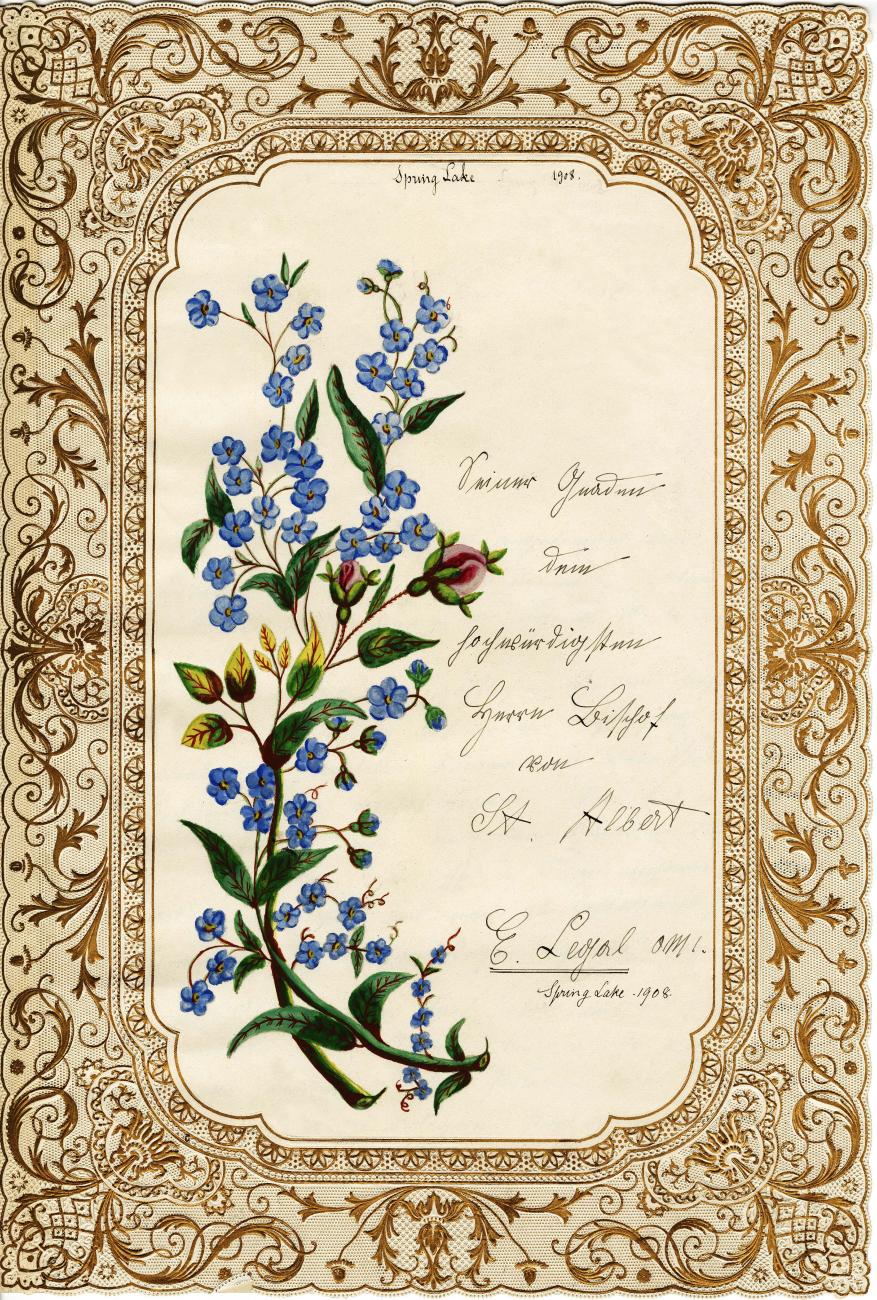 Spring Lake 1908.
Seiner Gnaden
dem
hochwürdigsten
Herrn Bischof
von
St. Albert
E. Legal O.M.I.
Spring Lake - 1908.